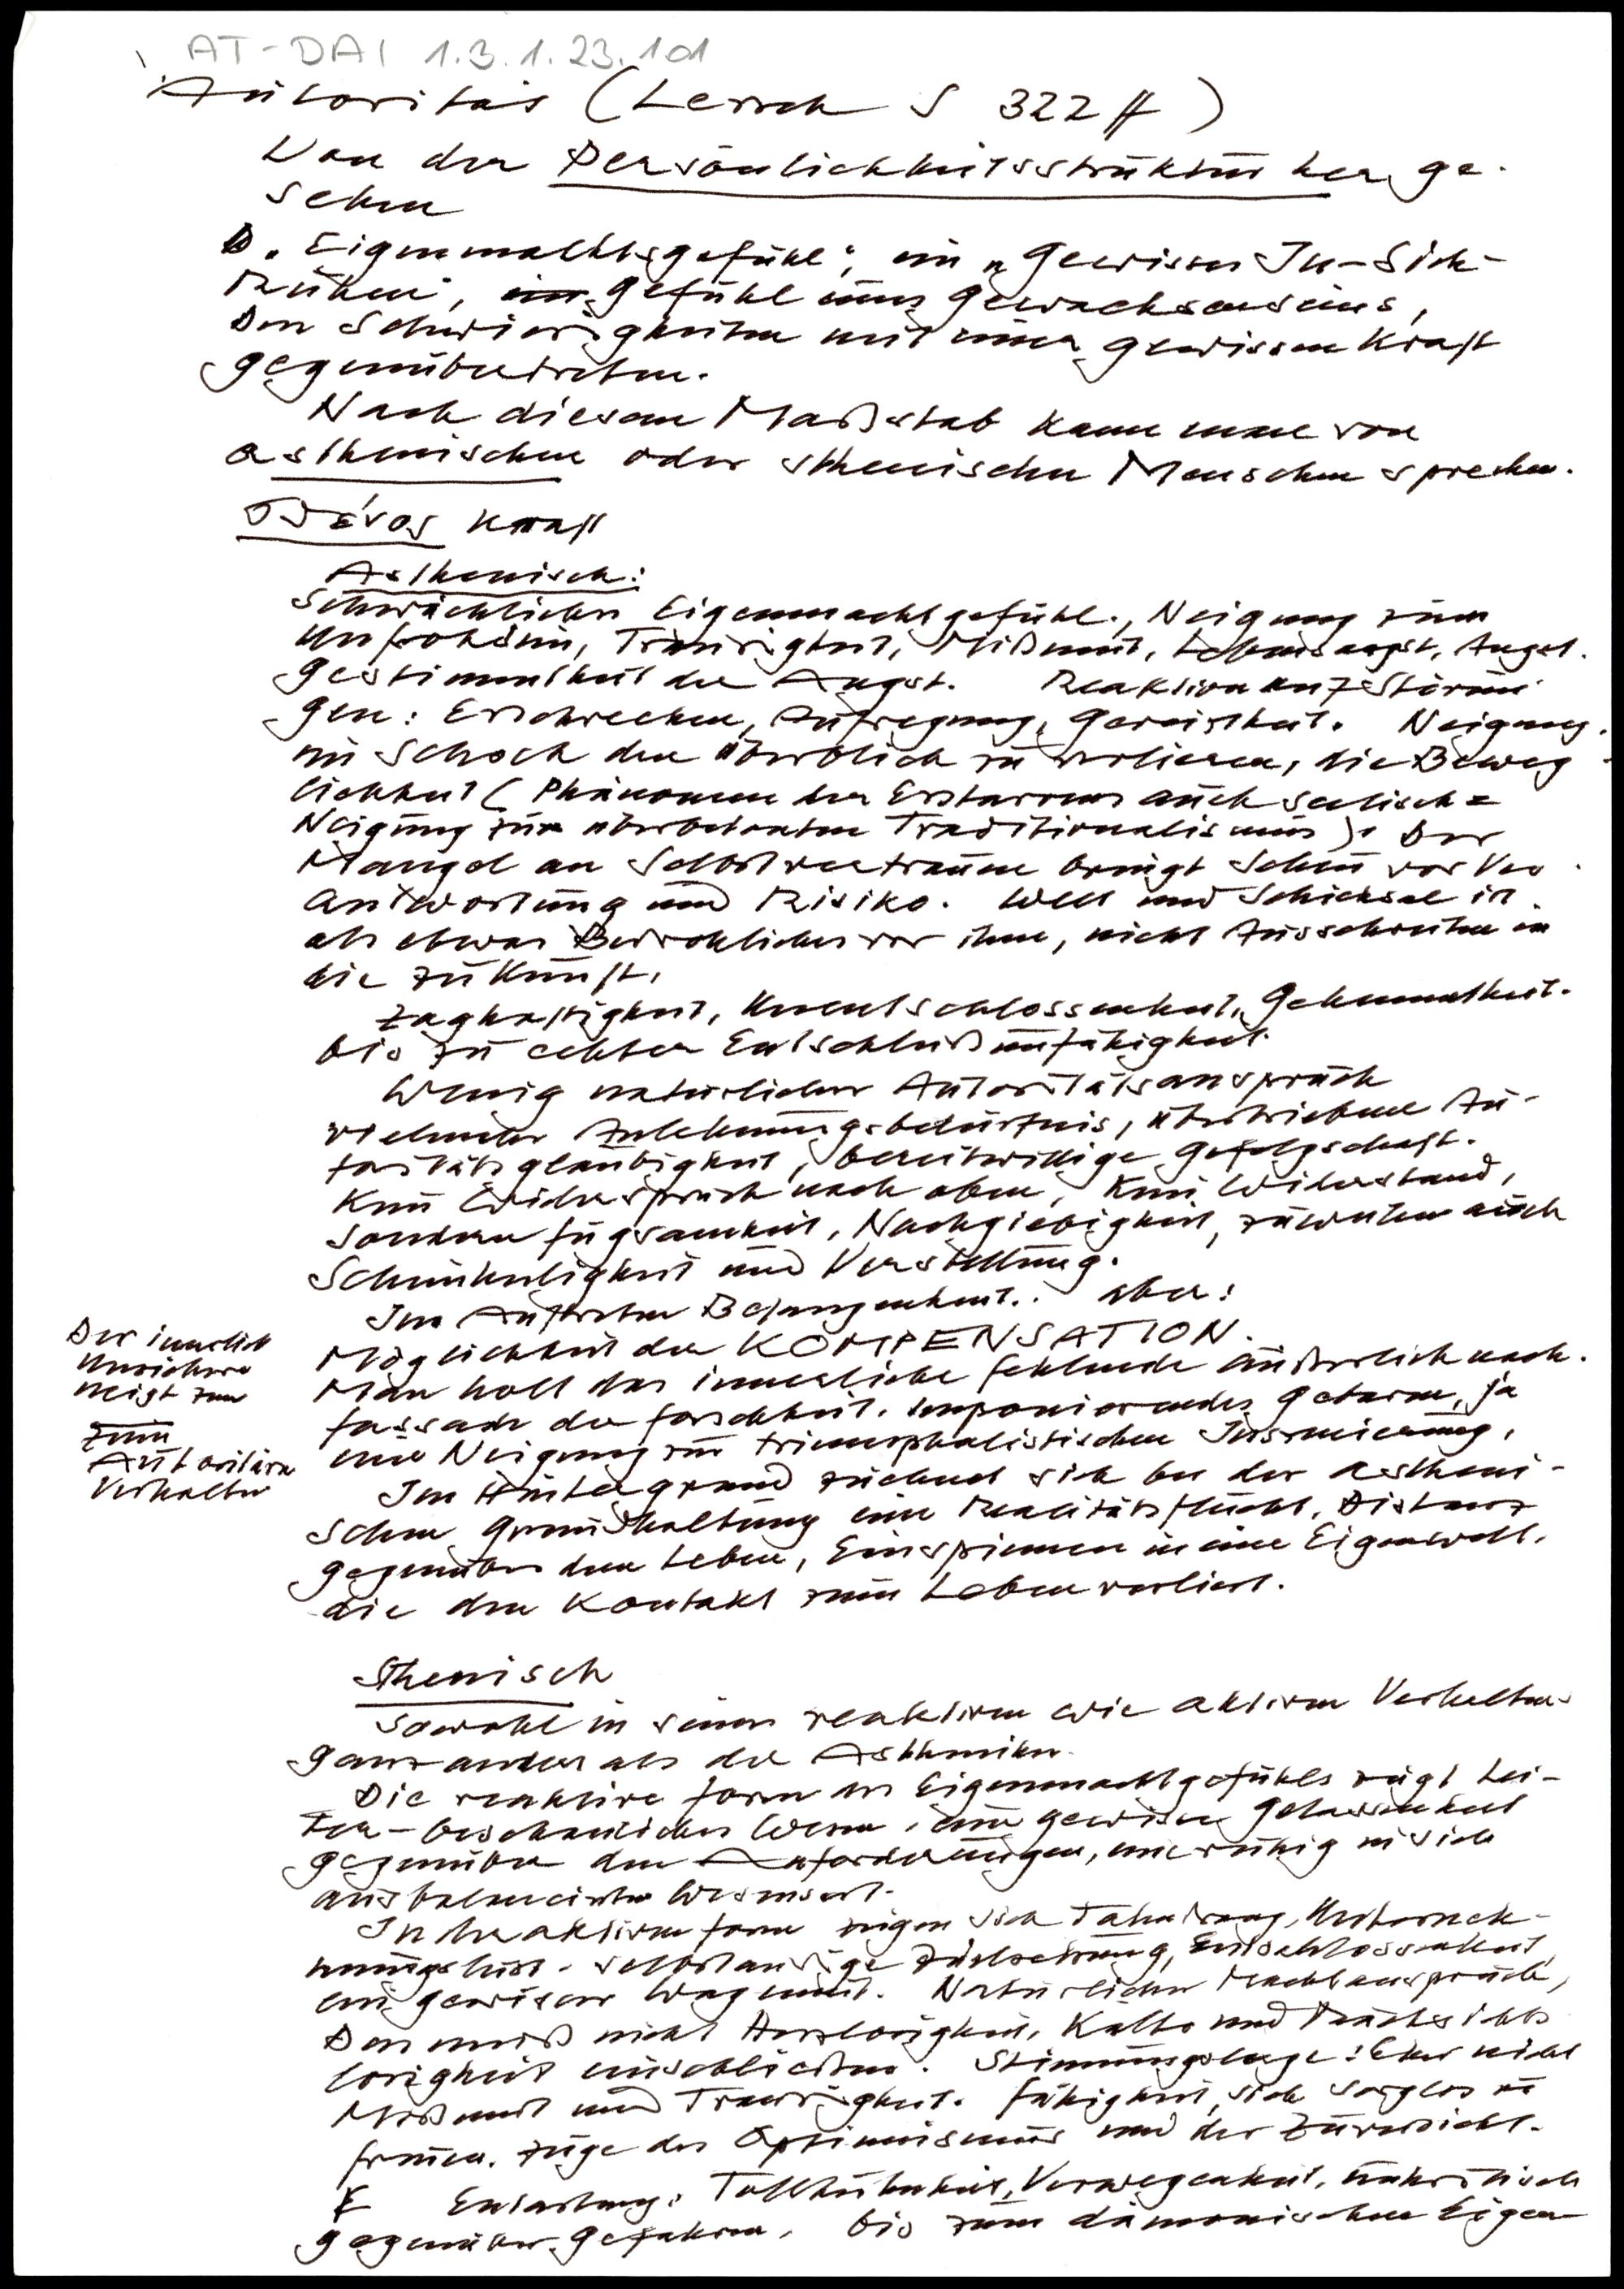 AT-DAI 1.3.1.23.101
Autorität (Lersch S 322 ff)
Von der Persönlichkeitsstruktur her ge-
sehen
D. "Eigenmachtsgefühl", ein "Gewisses In-Sich-
Ruhen", ein Gefühl eines Gewachsenseins,
Den Schwierigkeiten mit einer gewissen Kraft
gegenübertreten.
Nach diesem Maßstab kann man von
asthenischen oder sthenischen Menschen sprechen.
σθένος Kraft
Asthenisch:
Schwächliches Eigenmachtgefühl., Neigung zum
Unfrohsinn, Traurigkeit, Mißmut, Lebensangst, Angst.
Gestimmtheit der Angst. Reaktion auf Störun
gen: Erschrecken, Aufregung, Gereiztheit. Neigung.
im Schock den Überblick zu verlieren, die Beweg
lichkeit (Phänomen des Erstarrens auch seelisch =
Neigung zum überbetonten Traditionalismus). Der
Mangel an Selbstvertrauen bringt Scheu vor Ver
antwortung und Risiko. Welt und Schicksal ist
als etwas Bedrohliches vor ihm, nicht Ausschreiten in
die Zukunft.
Zaghaftigkeit, Unentschlossenheit, Gehemmtheit.
bis zu echter Entschlußunfähigkeit.
Wenig natürlicher Autoritätsanspruch
vielmehr Anlehnungsbedürfnis, übertriebene Au-
toritätsgläubigkeit, bereitwillige Gefolgschaft.
Kein Widerspruch nach oben, Kein Widerstand,
sondern Fügsamkeit, Nachgiebigkeit, zuweilen auch
Scheinheiligkeit und Verstellung.
Im Auftreten Befangenheit.. aber:
Möglichkeit der KOMPENSATION.
Man holt das innerliche Fehlende äußerlich nach.
Fassade der Forschheit. Imponierendes Getarne, ja
eine Neigung zur triumphalistischen Inszenierung.
Der innerlich
Unsichere
neigt zum
zum
Autoritären
Verhalten
Im Hintergrund zeichnet sich bei der astheni-
schen Grundhaltung eine Realitätsflucht, Distanz
gegenüber dem Leben, Einspinnen in eine Eigenwelt,
die den Kontakt zum Leben verliert.
Sthenisch
Sowohl in seinem reaktiven wie aktiven Verhalten
ganz anders als der Astheniker.
Die reaktive Form des Eigenmachtgefühls zeigt hei-
ter-beschauliches Wesen, eine gewisse Gelassenheit
gegenüber den Anforderungen, eine ruhig in sich
ausbalancierte Wesensart.
In der aktiven Form zeigen sich Tatendrang, Unterneh-
mungslust. selbständige Zielsetzung, Entschlossenheit,
ein gewisser Wagemut. Natürlicher Machtanspruch,
Den muß nicht Herzlosigkeit, Kälte und Rücksichts
losigkeit einschließen. Stimmungslage: Eher nicht
Mißmut und Traurigkeit. Fähigkeit, sich sorglos zu
freuen. Züge des Optimismus und der Zuversicht.
E Entartung: Tollkühnheit, Verwegenheit, unkritisch
gegenüber Gefahren, bis zum dämonischen Eigen-